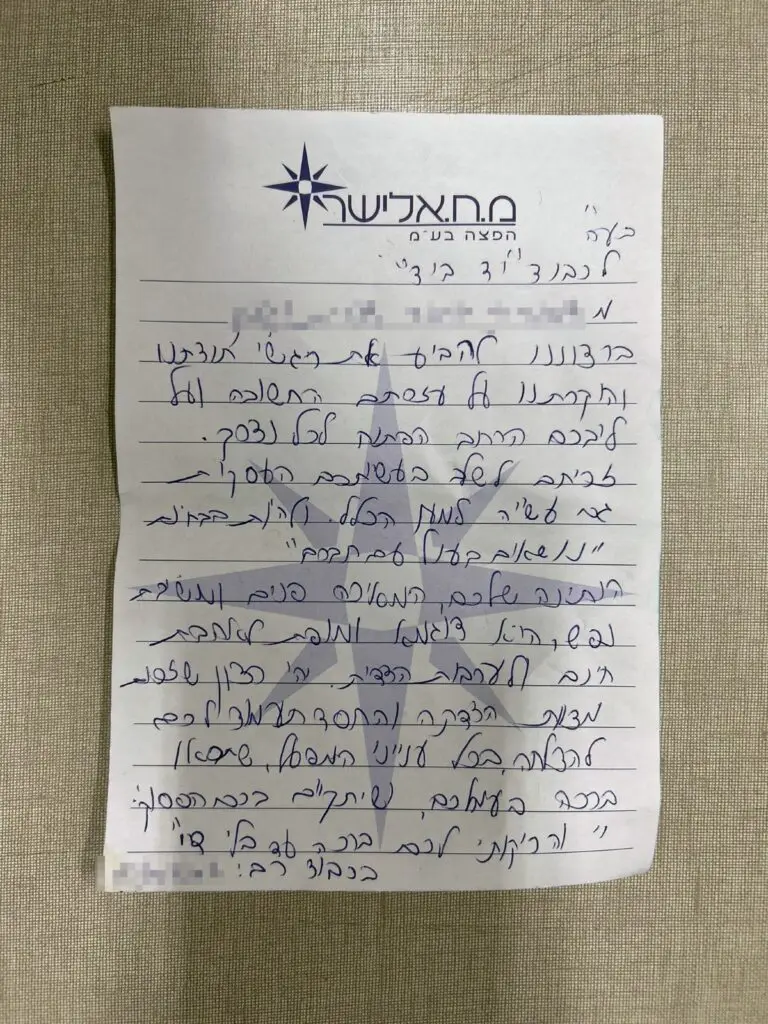 מ.ח.אלישר
הפצה בע"מ
בעה"י
לכבוד "יד ביד"
מ
ברצוננו להביע את רגשי תודתנו
והקרתנו על עזרתכם החשובה ועל
ליבכם הרחב הפתוח לכל נצרך.
זכיתם לשלב בעשייתכם העסקית
גם עשיה למען הכלל. ולהיות בבחינת
"נושאים בעול עם חברם"
הנתינה שלכם, המאירה פנים ומשיבת
נפש, היא דוגמא ומופת לאהבת
חינם ולערבות הדדית. יהי רצון שזכות
מצוות הצדקה והחסד תעמוד לכם
להצלחה בכל ענייני המפעל, שתראו
ברכה בעמלכם, ושיתקיים בכם הפסוק:
"והריקותי לכם ברכה עד בלי די"
בכבוד רב: